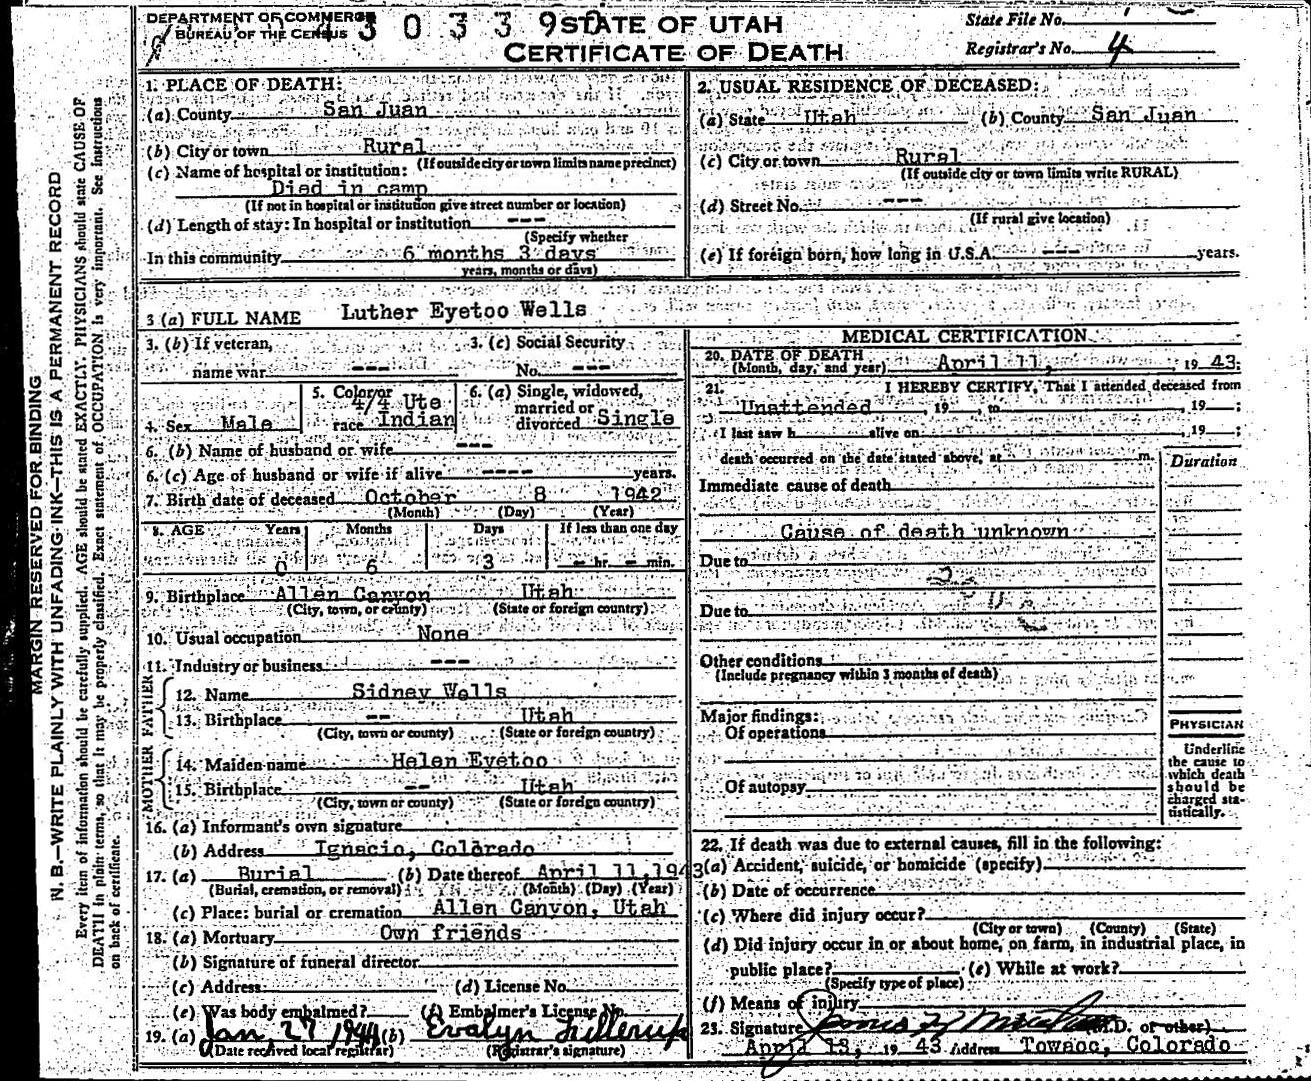 DEPARTMENT OF COMMERCE
BUREAU OF THE CENSUS
43 0 3 3 9 0
STATE OF UTAH
CERTIFICATE OF DEATH
State File No.
Registrar's No. 4
MARGIN RESERVED FOR BINDING
N. B.—WRITE PLAINLY WITH UNFADING INK—THIS IS A PERMANENT RECORD
Every item of information should be carefully supplied. AGE should be stated EXACTLY. PHYSICIANS should state CAUSE OF
DEATH in plain terms, so that it may be properly classified. Exact statement of OCCUPATION is very important. See instructions
on back of certificate.
1. PLACE OF DEATH:
(a) County San Juan
(b) City or town Rural
(If outside city or town limits name precinct)
(c) Name of hospital or institution:
Died in camp
(If not in hospital or institution give street number or location)
(d) Length of stay: In hospital or institution ---
(Specify whether
In this community 6 months 3 days
years, months or days)
2. USUAL RESIDENCE OF DECEASED:
(a) State Utah (b) County San Juan
(c) City or town Rural
(If outside city or town limits write RURAL)
(d) Street No. ---
(If rural give location)
(e) If foreign born, how long in U.S.A. --- years.
3 (a) FULL NAME Luther Eyetoo Wells
3. (b) If veteran, name war ---
3. (c) Social Security No. ---
4. Sex Male
5. Color or race 4/4 Ute Indian
6. (a) Single, widowed, married or divorced Single
6. (b) Name of husband or wife ---
6. (c) Age of husband or wife if alive ---- years.
7. Birth date of deceased October 8 1942
(Month) (Day) (Year)
8. AGE Years Months Days If less than one day
0 6 3 - hr. - min.
9. Birthplace Allen Canyon Utah
(City, town, or county) (State or foreign country)
10. Usual occupation None
11. Industry or business ---
FATHER
12. Name Sidney Wells
13. Birthplace -- Utah
(City, town or county) (State or foreign country)
MOTHER
14. Maiden name Helen Eyetoo
15. Birthplace -- Utah
(City, town or county) (State or foreign country)
16. (a) Informant's own signature
(b) Address Ignacio, Colorado
17. (a) Burial (b) Date thereof April 11, 1943
(Burial, cremation, or removal) (Month) (Day) (Year)
(c) Place: burial or cremation Allen Canyon, Utah
18. (a) Mortuary Own friends
(b) Signature of funeral director
(c) Address (d) License No.
(e) Was body embalmed? (f) Embalmer's License No.
19. (a) Jan. 27, 1944 (b) Evalyn
(Date received local registrar) (Registrar's signature)
MEDICAL CERTIFICATION
20. DATE OF DEATH
(Month, day, and year) April 11, 1943;
21. I HEREBY CERTIFY, That I attended deceased from
Unattended, 19 , to , 19 ;
I last saw h alive on , 19 ;
death occurred on the date stated above, at m.
Duration
Immediate cause of death
Cause of death unknown
Due to
Due to
Other conditions
(Include pregnancy within 3 months of death)
Major findings:
Of operations
Of autopsy
PHYSICIAN
Underline
the cause to
which death
should be
charged sta-
tistically.
22. If death was due to external causes, fill in the following:
(a) Accident, suicide, or homicide (specify)
(b) Date of occurrence
(c) Where did injury occur?
(City or town) (County) (State)
(d) Did injury occur in or about home, on farm, in industrial place, in
public place? (e) While at work?
(Specify type of place)
(f) Means of injury
23. Signature James (M.D. or other)
April 13, 1943 Address Towaoc, Colorado